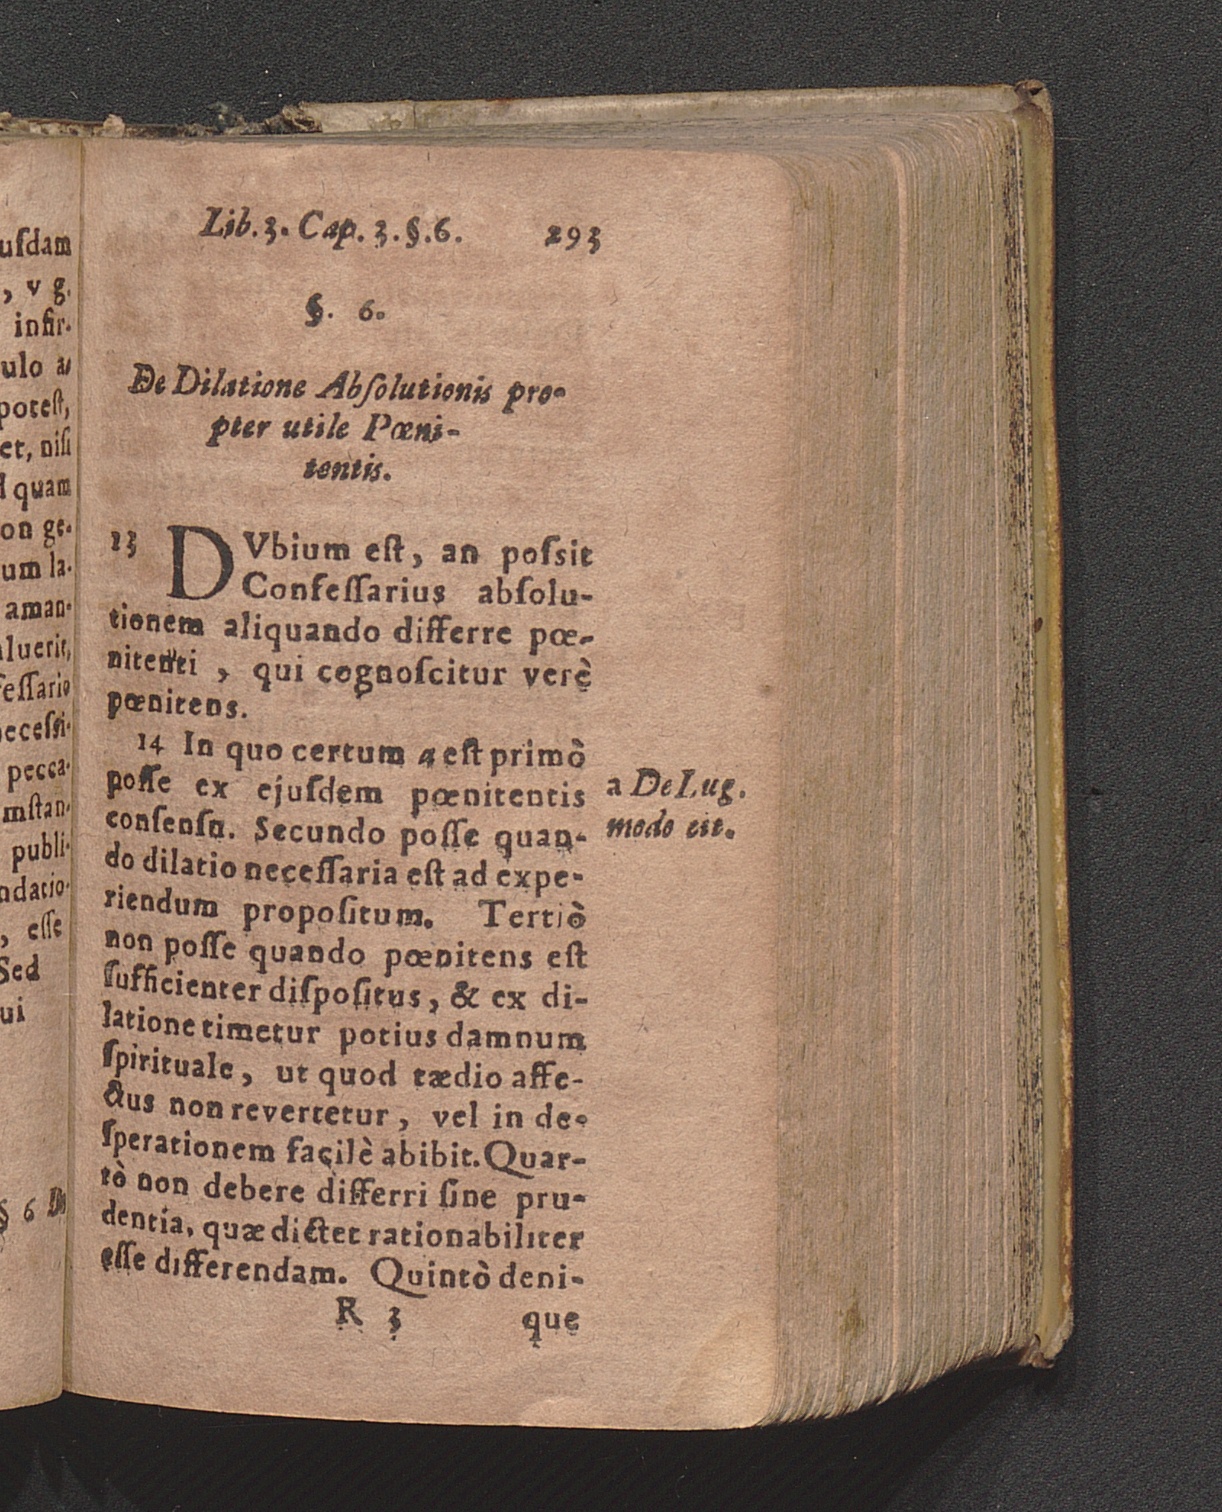 usdam
, v g.
infir-
ulo a
potest,
et, nisi
d quam
on ge-
um la-
aman-
aluerit,
fessario
necessi-
pecca-
mstan-
publi-
ndatio-
, esse
Sed
ui
§ 6 De
Lib. 3. Cap. 3. §. 6. 293
§. 6.
De Dilatione Absolutionis pro-
pter utile Pœni-
tentis.
13 DVbium est, an possit
Confessarius absolu-
tionem aliquando differre pœ-
nitenti, qui cognoscitur verè
pœnitens.
14 In quo certum a est primò
posse ex ejusdem pœnitentis
consensu. Secundo posse quan-
do dilatio necessaria est ad expe-
riendum propositum. Tertiò
non posse quando pœnitens est
sufficienter dispositus, & ex di-
latione timetur potius damnum
spirituale, ut quod tædio affe-
ctus non revertetur, vel in de-
sperationem facilè abibit. Quar-
tò non debere differri sine pru-
dentia, quæ dictet rationabiliter
esse differendam. Quintò deni-
R 3 que
a De Lug.
modo cit.